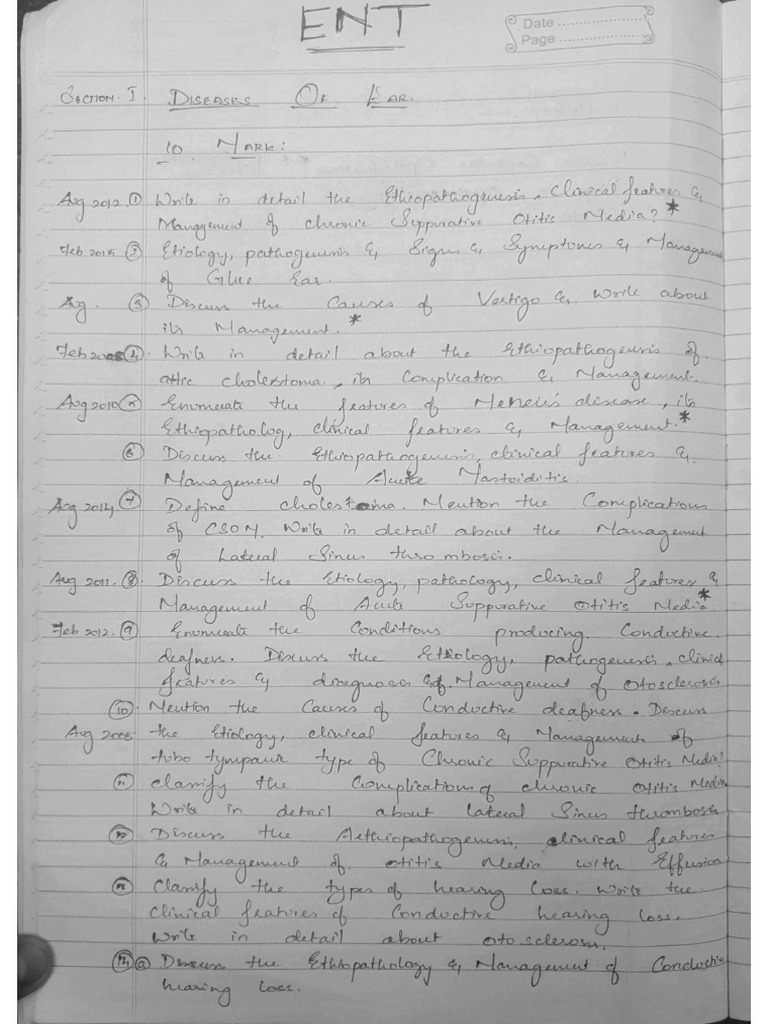 ENT
Date ....................
Page ....................
SECTION-I. DISEASES OF EAR.
10 MARK:
Aug 2012. ① Write in detail the Ethiopathogenesis, Clinical features &
Management of chronic Suppurative Otitis Media? *
Feb 2015 ② Etiology, pathogenesis &, Signs & Symptoms & Management
of Glue Ear.
Ag. ③ Discuss the Causes of Vertigo &. Write about
its Management. *
Feb ④. Write in detail about the Ethiopathogenesis of
attic cholestoma, its Complication & Management.
Aug 2010 ⑤ Enumerate the features of Meneir's disease, its
Ethiopatholog, clinical features & Management. *
⑥ Discuss the Ethiopathogenesis, clinical features &.
Management of Acute Mastoiditis.
Aug 2014, ⑦ Define cholestoma. Mention the Complications
of CSOM. Write in detail about the Management
of Lateral Sinus thrombosis.
Aug 2011. ⑧. Discuss the Etiology, pathology, clinical features &
Management of Acute Suppurative Otitis Media *
Feb 2012. ⑨ Enumerate the Conditions producing. Conductive.
deafness. Discuss the Etiology, pathogenesis, clinical
features & diagnosis & Management of otosclerosis
⑩. Mention the Causes of Conductive deafness. Discuss
Aug 2008 the Etiology, clinical features & Management of
tubo tympanic type of Chronic Suppurative Otitis Media?
⑪ Classify the Complications of chronic Otitis Media
Write in detail about lateral Sinus thrombosis
⑫ Discuss the Aethiopathogenesis, clinical features
& Management of. otitis Media with Effusion
⑬ Classify the types of hearing loss. Write the.
Clinical features of Conductive hearing loss.
Write in detail about otosclerosis.
⑭ⓐ Discuss the Ethiopathology & Management of Conductive
hearing loss.